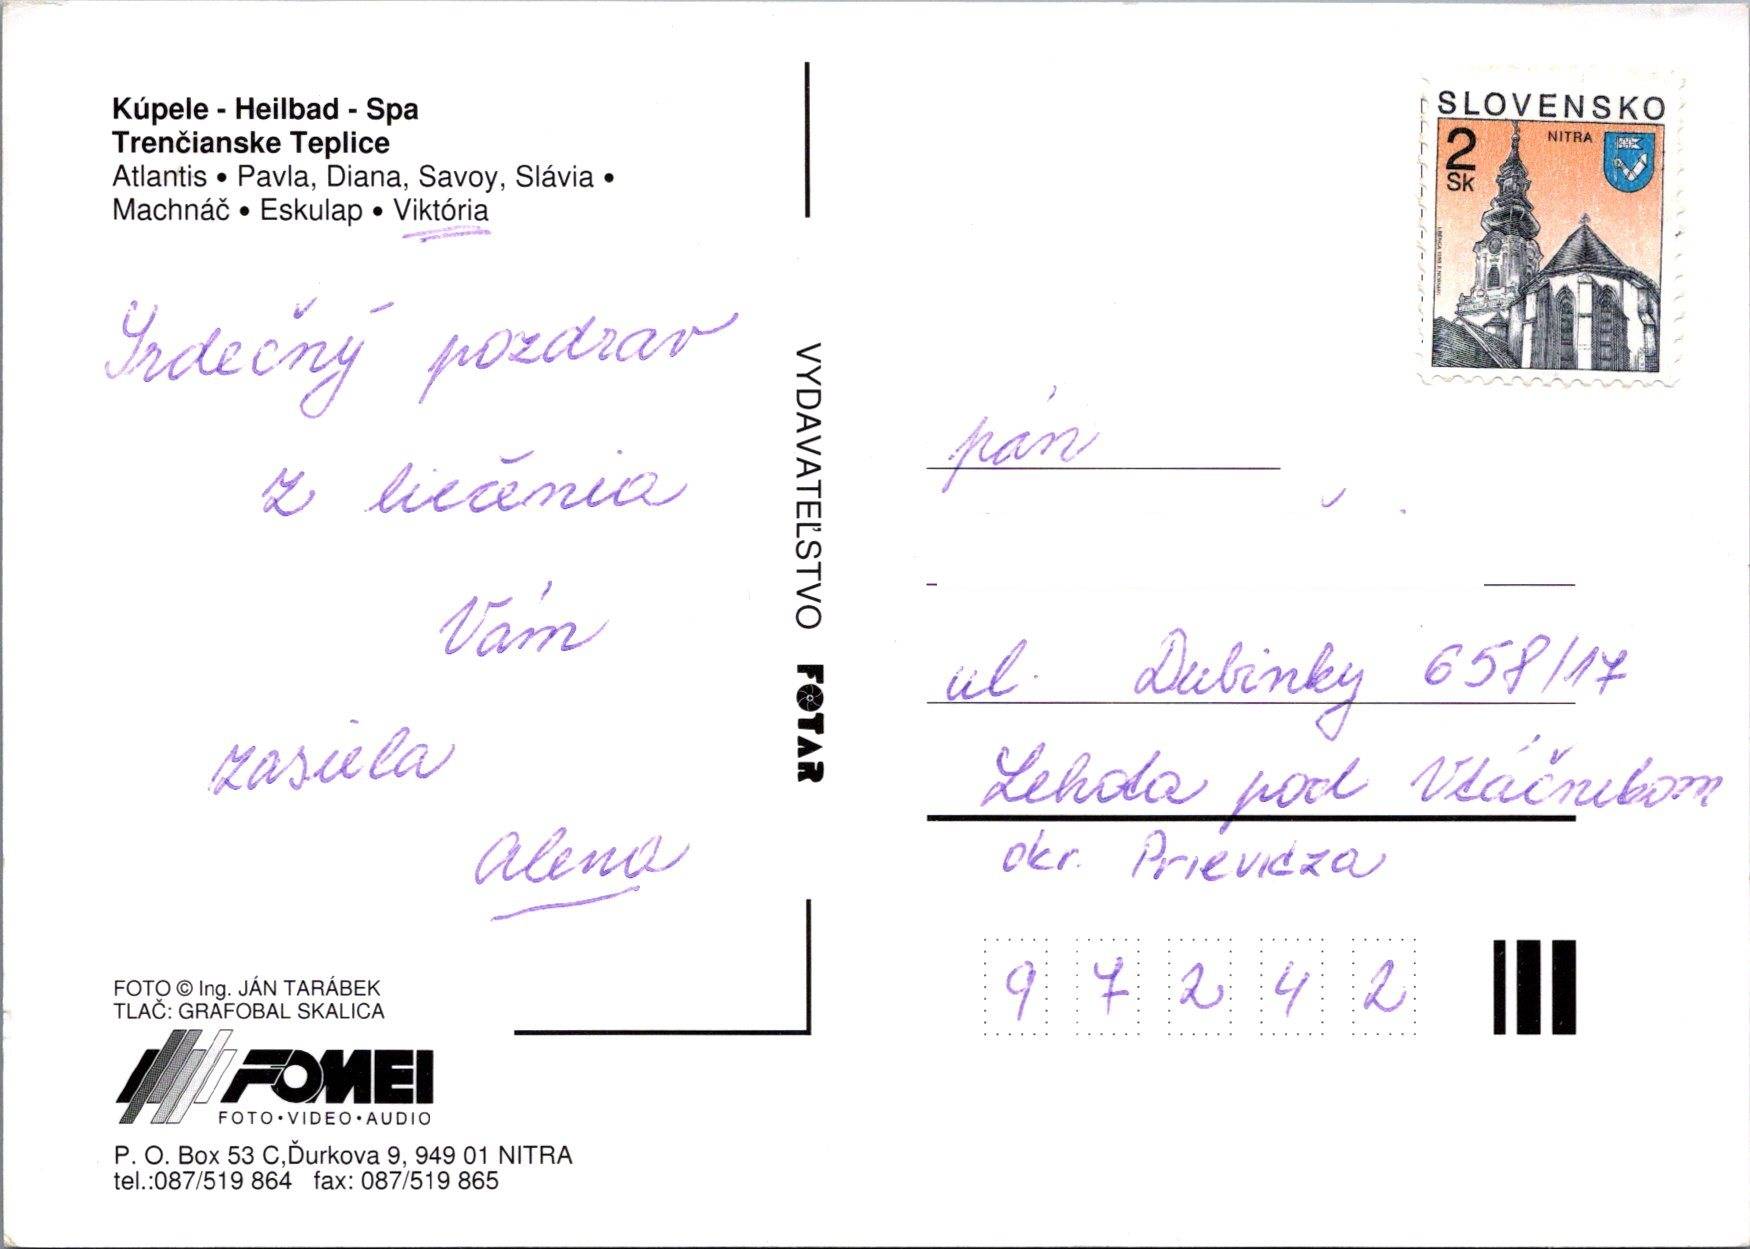 Kúpele - Heilbad - Spa
Trenčianske Teplice
Atlantis • Pavla, Diana, Savoy, Slávia •
Machnáč • Eskulap • Viktória
Srdečný pozdrav
z liečenia
Vám
zasiela
Alena
FOTO © Ing. JÁN TARÁBEK
TLAČ: GRAFOBAL SKALICA
FOMEI
FOTO • VIDEO • AUDIO
P. O. Box 53 C,Ďurkova 9, 949 01 NITRA
tel.:087/519 864 fax: 087/519 865
VYDAVATEĽSTVO FOTAR
SLOVENSKO
NITRA
2
Sk
pán
ul. Dubinky 658/17
Lehota pod Vtáčnikom
okr. Prievidza
9 7 2 4 2